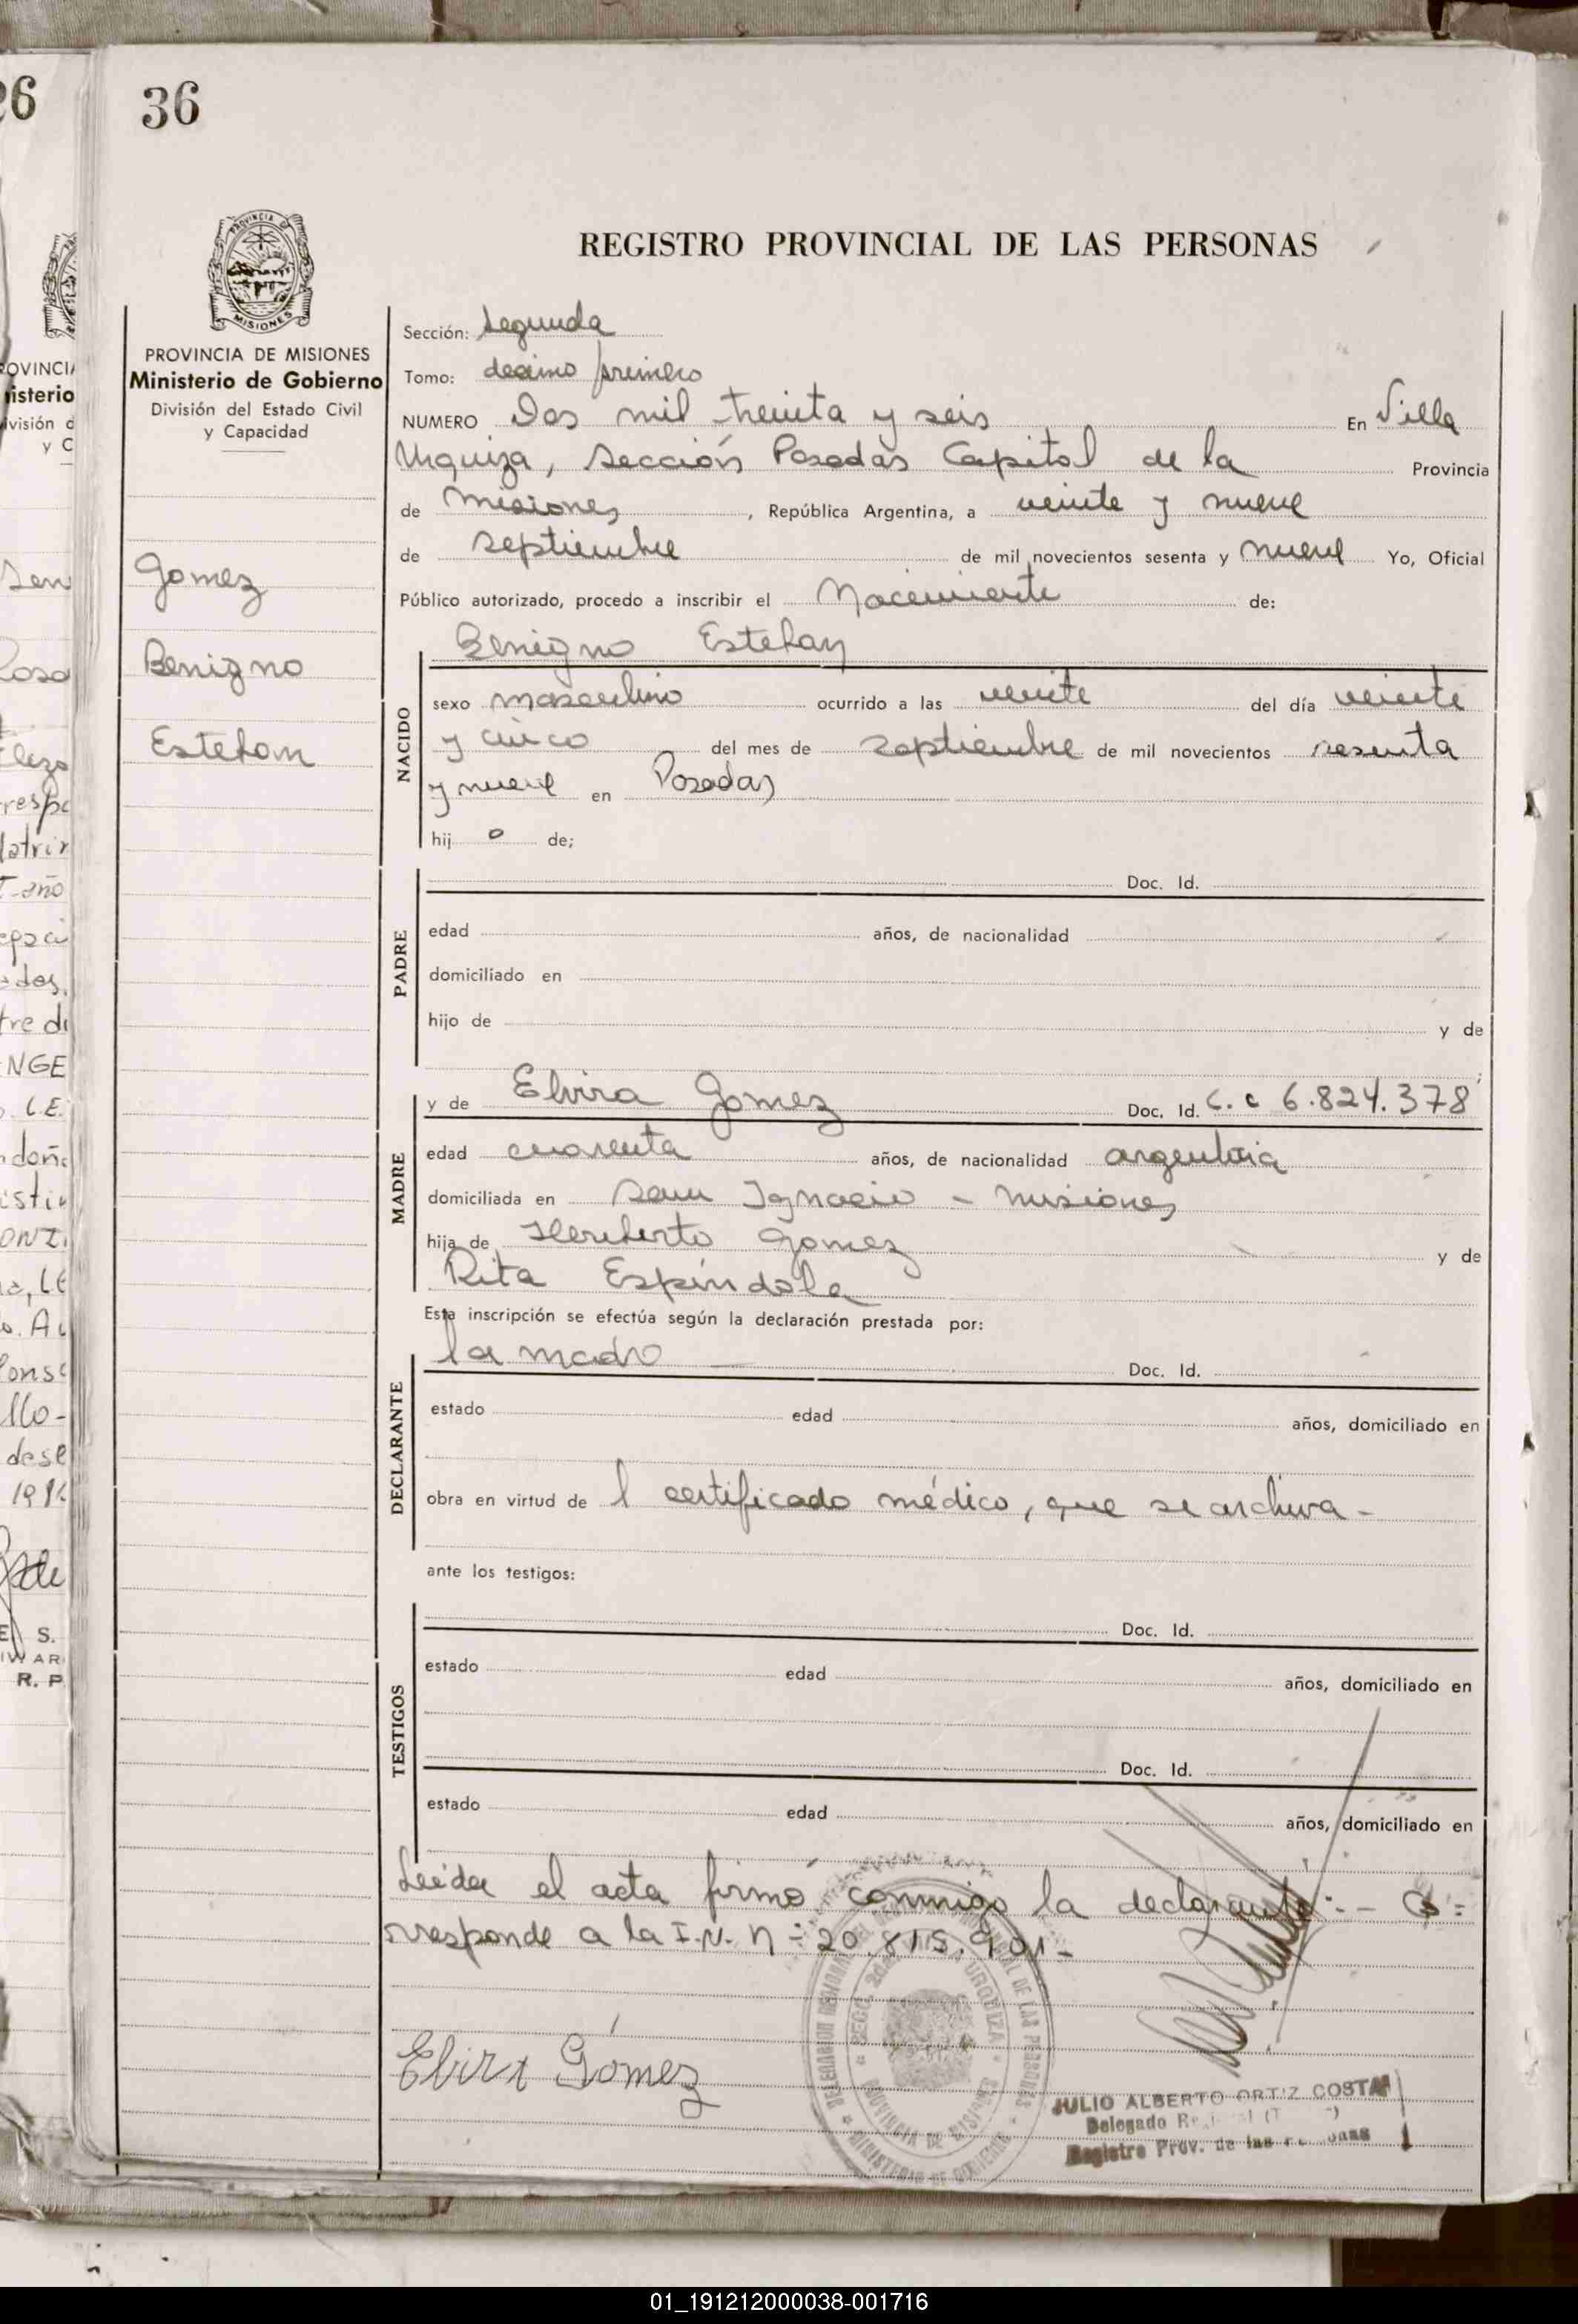 26
36
PROVINCIA DE MISIONES
Ministerio de Gobierno
División del Estado Civil
y Capacidad
Gomez
Benigno
Esteban
REGISTRO PROVINCIAL DE LAS PERSONAS
Sección: Segunda
Tomo: decimo primero
NUMERO Dos mil treinta y seis En Villa
Urquiza, Sección Posadas Capital de la Provincia
de Misiones, República Argentina, a veinte y nueve
de septiembre de mil novecientos sesenta y nueve Yo, Oficial
Público autorizado, procedo a inscribir el Nacimiento de:
Benigno Esteban
NACIDO
sexo masculino ocurrido a las veinte del día veinte
y cinco del mes de septiembre de mil novecientos sesenta
y nueve en Posadas
hij o de;
PADRE
Doc. Id.
edad años, de nacionalidad
domiciliado en
hijo de y de
MADRE
y de Elvira Gomez Doc. Id. C. c 6.824.378
edad cuarenta años, de nacionalidad argentina
domiciliada en San Ignacio - Misiones
hija de Heriberto Gomez y de
Rita Espíndola
Esta inscripción se efectúa según la declaración prestada por:
DECLARANTE
la madre — Doc. Id.
estado edad años, domiciliado en
obra en virtud de l certificado médico, que se archiva -
ante los testigos:
TESTIGOS
Doc. Id.
estado edad años, domiciliado en
Doc. Id.
estado edad años, domiciliado en
Leída el acta firmó conmigo la declarante:- Co=
rresponde a la I.N. Nº 20.815.901-
Elvira Gómez
JULIO ALBERTO ORTIZ COSTA
Delegado
Registro Prov. de las Personas
01_191212000038-001716